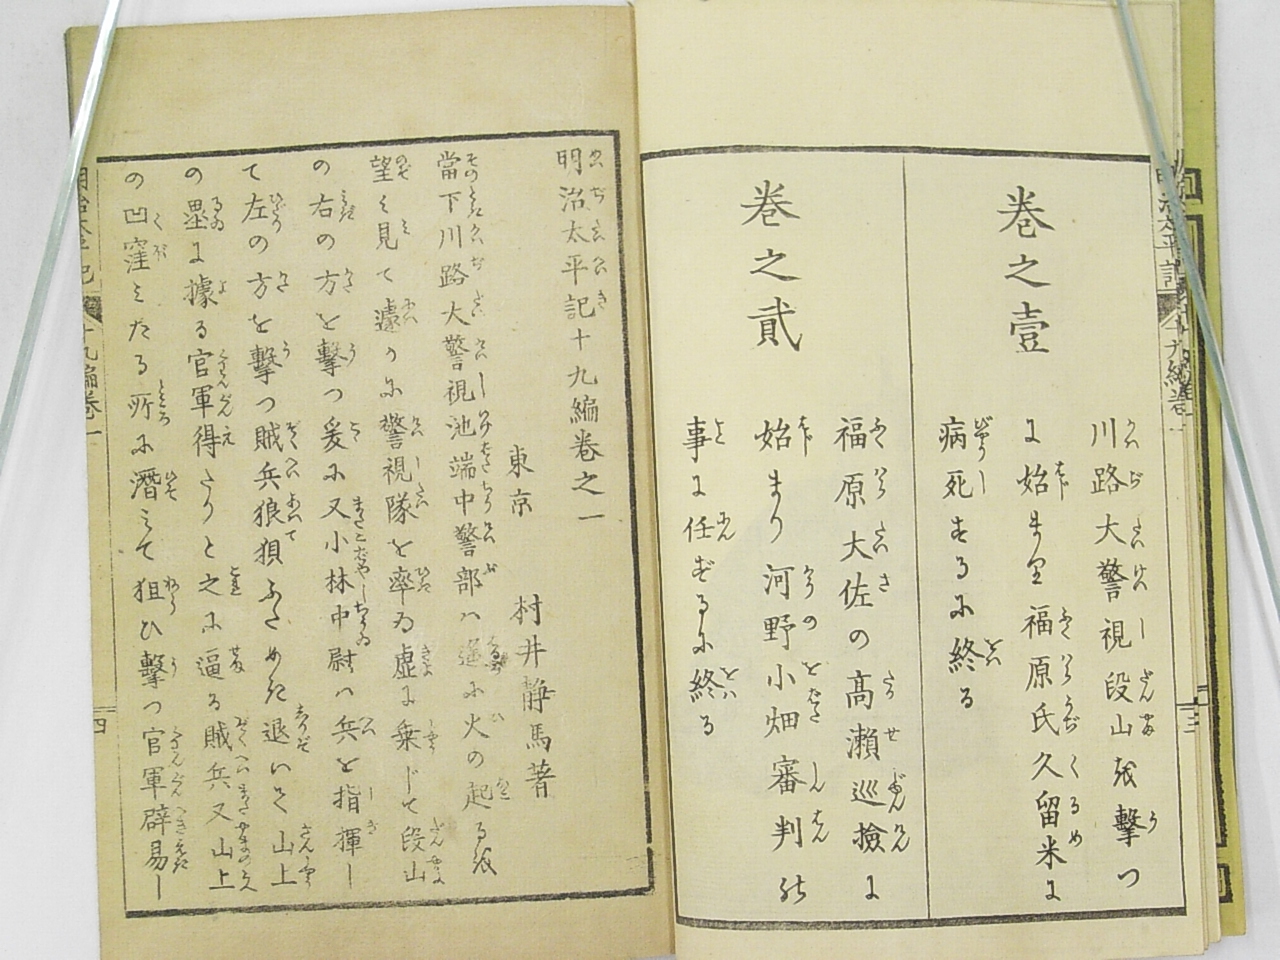 巻之壹
川路大警視段山を撃つ
に始まり福原氏久留米に
病死するに終る
巻之貳
福原大佐の高瀬巡撿に
始まり河野小畑審判の
事に任ずるに終る
明治太平記十九編巻之一
東京 村井静馬著
當下川路大警視池端中警部ハ遥に火の起るを
望み見て遽かに警視隊を率ゐ虚に乗じて段山
の右の方を撃つ爰に又小林中尉ハ兵を指揮し
て左の方を撃つ賊兵狼狽ふためき退いて山上
の壘に據る官軍得たりと之に逼る賊兵又山上
の凹窪みたる所に潜みて狙ひ撃つ官軍辟易し